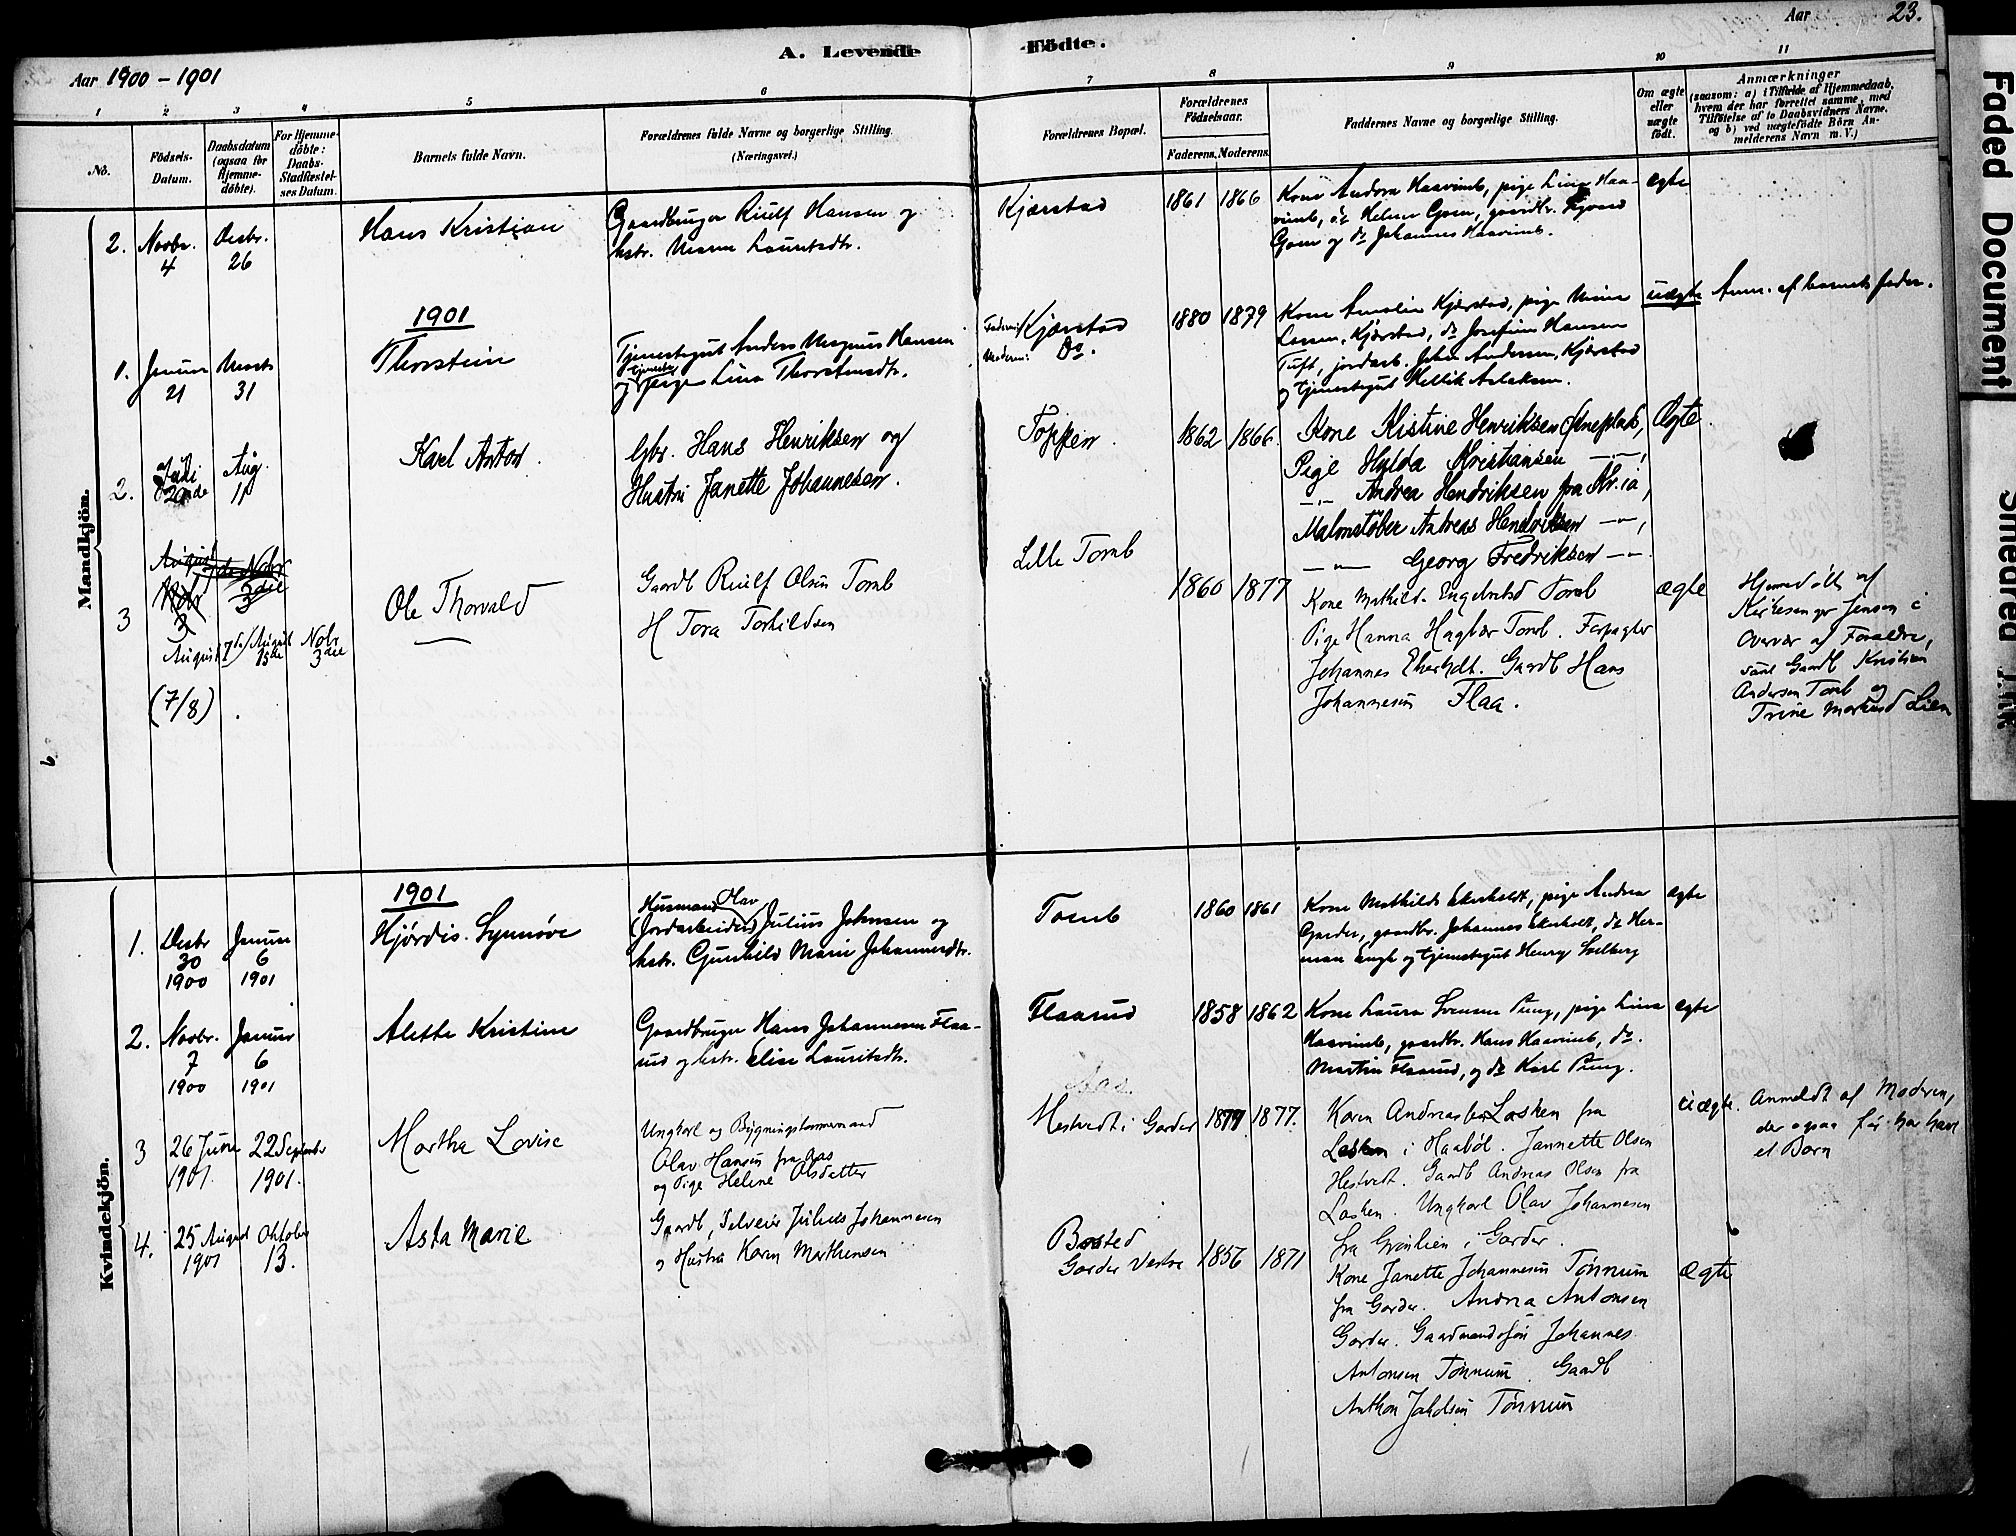 23.
Aar 1900 - 1901
A. Levende Födte.
Aar
1 2 3 4 5 6 7 8 9 10 11
No.
Födsels-Datum.
Daabsdatum (ogsaa for Hjemme-döbte).
For Hjemme-döbte: Daabs-Stadfæstel-ses Datum.
Barnets fulde Navn.
Forældrenes fulde Navne og borgerlige Stilling.
(Næringsvei.)
Forældrenes Bopæl.
Forældrenes Födselsaar.
Faderens. Moderens.
Faddernes Navne og borgerlige Stilling.
Om ægte eller uægte födt.
Anmærkninger
(saasom: a) i Tilfælde af Hjemmedaab,
hvem der har forrettet samme, med
Tilföielse af to Daabsvidners Navne.
og b) ved uægtefödte Börn An-
melderens Navn m. V.)
Mandkjön.
2. Novbr. 4 Desbr. 26
Hans Kristian
Gaardbruger Riulf Hansen og
hstr. Lauritsdtr.
Kjærstad
1861 1866
Kone Andora Haavimb, pige Lina Haa-
vimb, do Helene Goen, gaardbr.
Goen og do Johannes Haavimb.
ægte
1901
1. Januar 21 Marts 31
Thorstein
Tjenestegut Anders Magnus Hansen
og tjeneste pige Lina Thorstensdtr.
Faderens: Kjærstad
Moderens: Do.
1880 1879
Kone Amalie Kjærstad, pige Mina
Larsen, Kjærstad, do Josefine Hansen
Tuft, jordarb. Johan Andersen, Kjærstad
og tjenestegut Hellik Aslaksen.
uægte
Anm. af barnets fader.
2. Juli Aug. 11
Karl Anton.
Gbr. Hans Henriksen og
Hustru Janette Johannesen.
Toppen.
1862 1866.
Kone Kistine Henriksen
Pige Hylda Kristiansen —"—,
—"— Andrea Hendriksen fra Kr.ia,
Andreas Hendriksen —"—,
—"— Georg Fredriksen —"—.
Ægte.
3
August 7de / August 15de Nobr 3die
(7/8)
Ole Thorvald
Gaardb Riulf Olsen Tomb
H Tora Torkildsen
Lille Tomb
1860 1877
Kone Mathilde Engelstad Tomb
Pige Hanna Hagbær Tomb. Forpagter
Johannes Ekerholdt. Gaardb Hans
Johannesen Flaa.
ægte
Hjemmedöbt af
Kirkesanger Jensen i
Overvær af Forældre,
samt Gaardb Kristian
Andersen Tomb og
Trine Lien
Kvindekjön.
1901
1. Desbr 30 1900 Januar 6 1901
Hjördis Synnöve
Husmand Olav
(Jordarbeider) Julius Johnsen og
hstr. Gunhild Marie Johannesdtr.
Tomb
1860 1861
Kone Mathilde Ekerholdt, pige Andrea
Garder, gaardbr. Johannes Ekeholt, do Her-
man Engh og tjenestegut Henry Solberg
ægte
2. Novbr. 7 1900 Januar 6 1901
Alette Kristine
Gaardbruger Hans Johannesen Flaa-
rud og hstr. Elise Lauritsdtr.
Flaarud
1858 1862
Kone Laura Svensen Pung, pige Lina
Haavimb, gaardbr. Hans Haavimb, do.
Martin Flaarud, og do Karl Pung.
ægte
3 26 Juni 1901. 22 September 1901.
Martha Lovise
Ungkarl og Bygningstömmermand
Olav Hansen fra Aas
og Pige Helene Olsdatter
Aas.
Hestvedt i Garder
1877 1877.
Karen Andreasen Losken fra
Losken i Haaböl. Jannette Olsen
Hestvedt. Gaardb Andreas Olsen fra
Losken. Ungkarl Olav Johannesen
fra Grönlien i Garder.
uægte.
Anmeldt af Moderen,
der ogsaa för har havt
et Barn
4. 25 August 1901 Oktober 13.
Asta Marie
Gaardb, Selveier Julius Johannesen
og Hustru Karen Mathensen
Bosted
Garder Vestre
1856 1871
Kone Janette Johannesen Tönnum
fra Garder. Andrea Antonsen
Garder. Gaardmandssön Johannes
Antonsen Tönnum. Gaardb
Anthon Jakobsen Tönnum
ægte
Faded Document
Smeared Ink